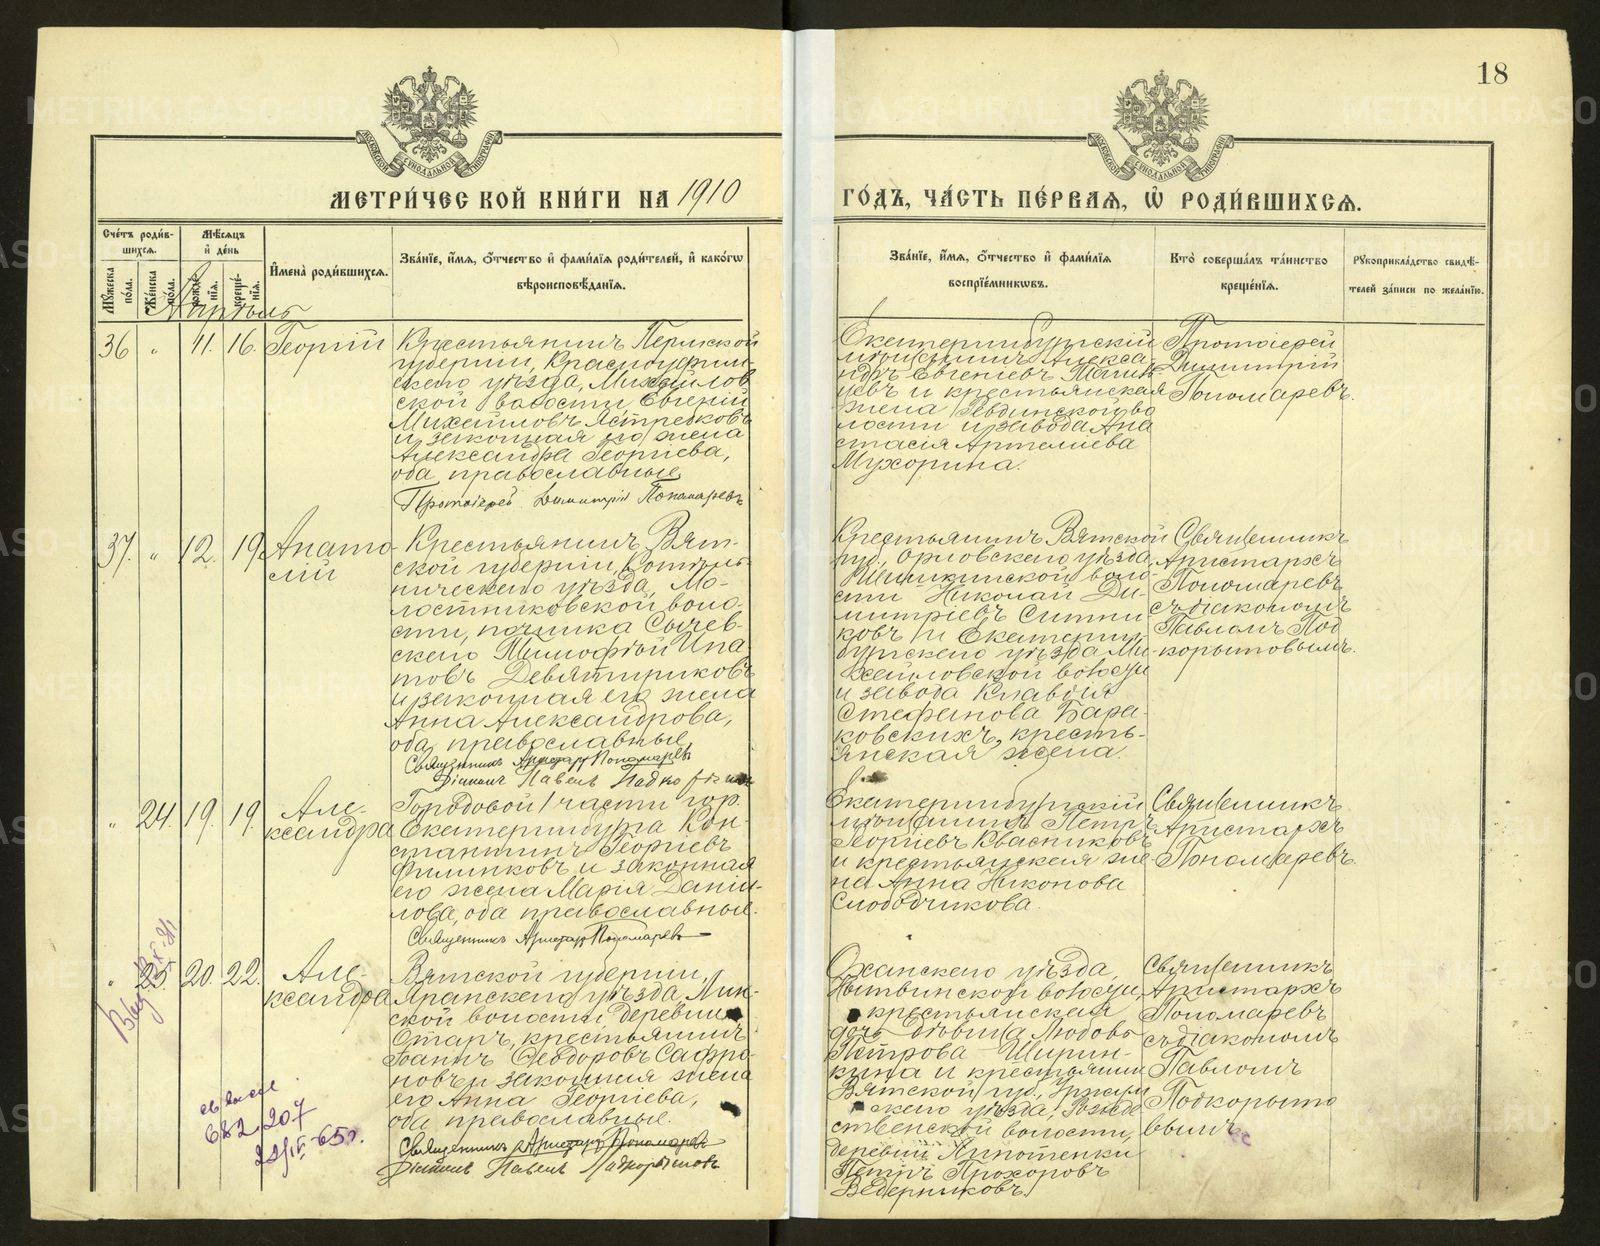 18
МЕТРИЧЕСКОЙ КНИГИ НА 1910
ГОДЪ, ЧАСТЬ ПЕРВАЯ, Ѡ РОДИВШИХСЯ.
Счетъ родившихся.
Мужеска пола.
Женска пола.
Мѣсяцъ и день
рожденія.
крещенія.
Имена родившихся.
Званіе, имя, отчество и фамилія родителей, и какого
вѣроисповѣданія.
Званіе, имя, отчество и фамилія
воспріемниковъ.
Кто совершалъ таинство
крещенія.
Рукоприкладство свидѣ-
телей записи по желанію.
36 „ 11. 16. Георгій
Крестьянинъ Пермской
губерніи, Красноуфим-
скаго уѣзда, Михайлов
ской волости Евгеній
Михайловъ Ястребковъ
и законная его жена
Александра Георгіева,
оба православные
Протоіерей Димитрій Пономаревъ
Екатеринбургскій
мѣщанинъ Алекса-
ндръ Евгеніевъ
и крестьянская
жена Ревдинской во
лости и завода Ана
стасія Артеміева
Мухорина.
Протоіерей
Димитрій
Пономаревъ.
37. „ 12. 19. Анато-
лій
Крестьянинъ Вят-
ской губерніи, Котель-
ническаго уѣзда, Мо-
лостниковской воло-
сти, починка Сычев-
скаго Тимофей Ипа-
товъ Девятириковъ
и законная его жена
Анна Александрова,
оба православные
Священникъ Аристархъ Пономаревъ
Діаконъ Павелъ
Крестьянинъ Вятской
губ., Орловскаго уѣзда,
Шишкинской воло-
сти Николай Ди-
митріевъ Ситни
ковъ и Екатерин-
бургскаго уѣзда Ми-
хайловской волости
и завода Клавдія
Стефанова Бара-
ковскихъ, кресть-
янская жена.
Священникъ
Аристархъ
Пономаревъ
съ діакономъ
Павломъ Под
корытовымъ.
„ 24. 19. 19. Але-
ксандра
Городовой 1 части гор.
Екатеринбурга Кон-
стантинъ Георгіевъ
Филинковъ и законная
его жена Марія Даніи-
лова, оба православные.
Священникъ Аристархъ Пономаревъ
Екатеринбургскій
мѣщанинъ Петръ
Георгіевъ Квасниковъ
и крестьянская же-
на Анна Никонова
Слободчикова.
Священникъ
Аристархъ
Пономаревъ.
„ 25. 20. 22. Але-
ксандра
Вятской губерніи,
Яранскаго уѣзда,
ской волости деревни
крестьянинъ
Іоаннъ Ѳеодоровъ Сафро-
новъ и законная жена
его Анна Георгіева,
оба православные.
Священникъ Аристархъ Пономаревъ
Діаконъ Павелъ Подкорытовъ
Оханскаго уѣзда,
Нытвинской волости,
крестьянская
дочь дѣвица Любовь
Петрова Ширин-
кина и крестьянинъ
Вятской губ., Уржум
скаго уѣзда, Рожде
ственской волости,
деревни
Петръ Прохоровъ
Ведерниковъ.
Священникъ
Аристархъ
Пономаревъ
съ діакономъ
Павломъ
Подкорыто
вымъ.
682207
METRIKI.GASO-URAL.RU